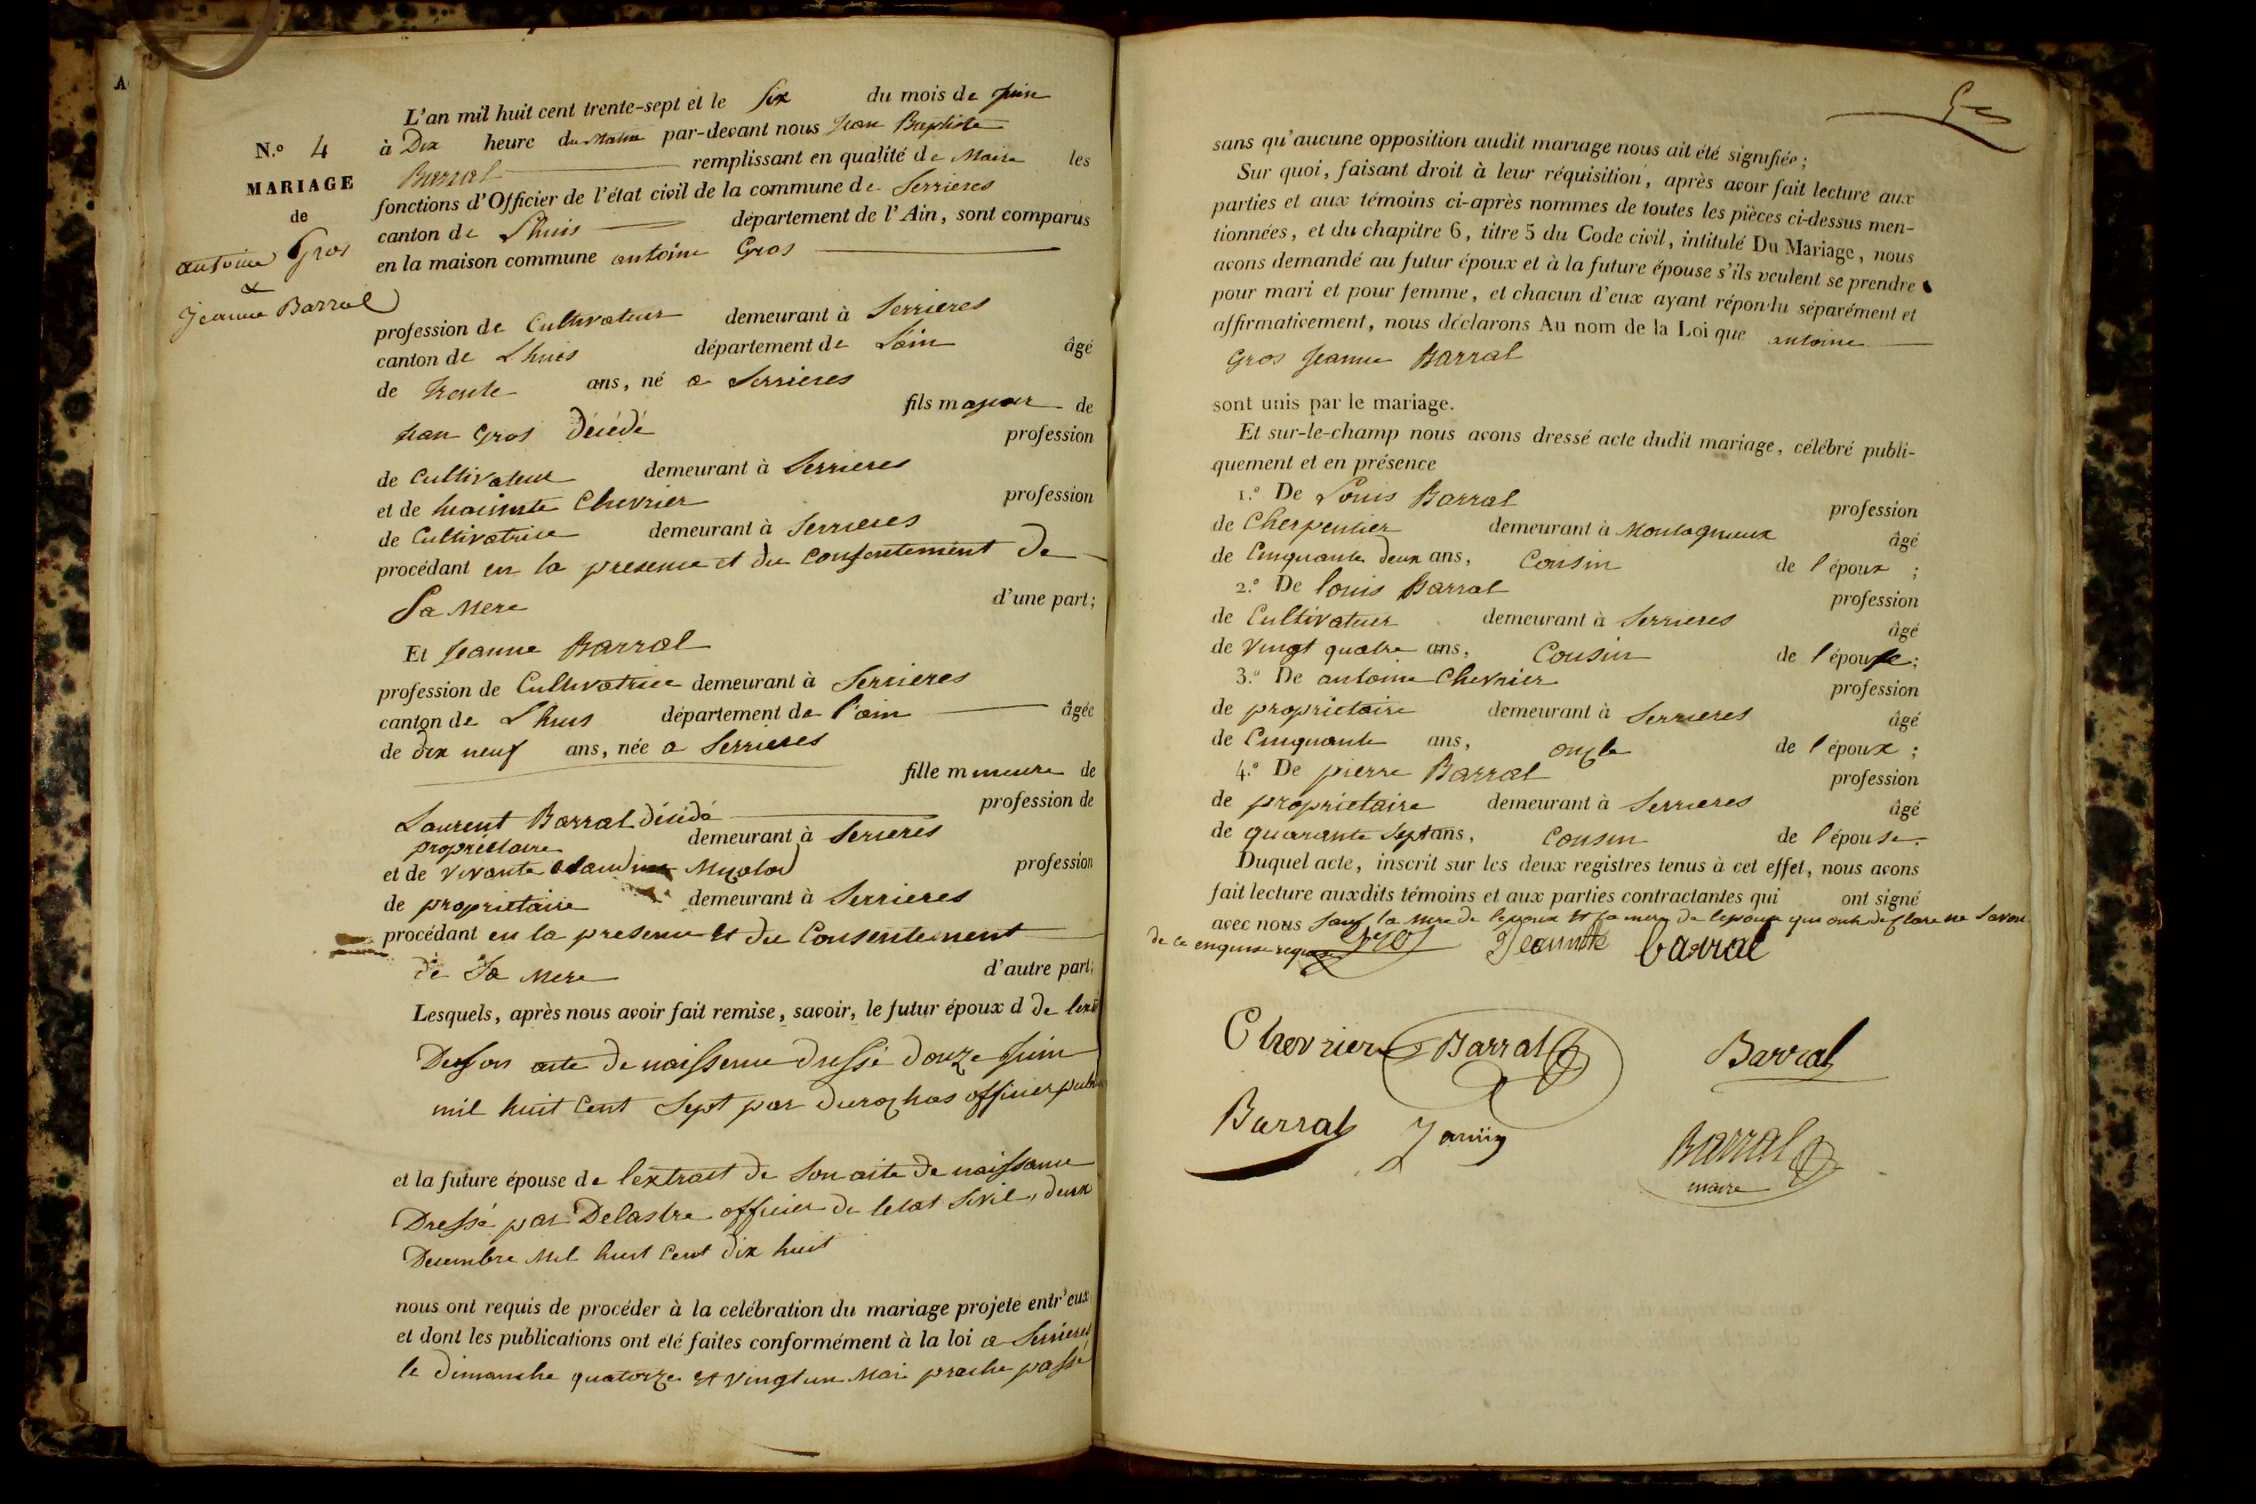 N.º 4
MARIAGE
de
antoine Gros
&
Jeanne Barral
L'an mil huit cent trente-sept et le six du mois de juin
à Dix heure du matin par-devant nous Jean Baptiste
Barral remplissant en qualité de Maire les
fonctions d'Officier de l'état civil de la commune de Serrieres
canton de Lhuis département de l'Ain, sont comparus
en la maison commune antoine Gros
profession de Cultivateur demeurant à Serrieres
canton de Lhuis département de Lain âgé
de trente ans, né a Serrieres
fils majeur de
jean Gros décédé profession
de Cultivateur demeurant à Serrieres
et de Chevrier profession
de Cultivatrice demeurant à Serrieres
procédant en la presence et du consentement de
Sa Mere d'une part;
Et Jeanne Barral
profession de Cultivatrice demeurant à Serrieres
canton de Lhuis département de l'ain âgée
de dix neuf ans, née a Serrieres
fille mineure de
Laurent Barral décédé profession de
propriétaire demeurant à Serieres
et de vivante profession
de propriétaire demeurant à Serrieres
procédant en la presence et du Consentement
de Sa Mere d'autre part;
Lesquels, après nous avoir fait remise, savoir, le futur époux d de
De son acte de naissence dressé douze juin
mil huit Cent Sept par officier
et la future épouse de lextrait de Son acte de naissance
Dressé par Delastre officier de letat Sivil, deux
Decembre Mil huit Cent dix huit
nous ont requis de procéder à la celébration du mariage projeté entr'eux
et dont les publications ont été faites conformément à la loi a Serrieres
le dimanche quatorze et vingt un Mai proche passé
sans qu'aucune opposition audit mariage nous ait été signifiée;
Sur quoi, faisant droit à leur réquisition, après avoir fait lecture aux
parties et aux témoins ci-après nommes de toutes les pièces ci-dessus men-
tionnées, et du chapitre 6, titre 5 du Code civil, intitulé Du Mariage, nous
avons demandé au futur époux et à la future épouse s'ils veulent se prendre
pour mari et pour femme, et chacun d'eux ayant répondu séparément et
affirmativement, nous déclarons Au nom de la Loi que antoine
Gros Jeanne Barral
sont unis par le mariage.
Et sur-le-champ nous avons dressé acte dudit mariage, célébré publi-
quement et en présence
1.º De Louis Barral profession
de Cherpentier demeurant à Montagnieux âgé
de Cinquante deux ans, Cousin de l'époux ;
2.º De louis Barral profession
de Cultivateur demeurant à Serrieres âgé
de vingt quatre ans, Cousin de l'épouse;
3.º De antoine Chevrier profession
de propriétaire demeurant à Serrieres âgé
de Cinquante ans, oncle de l'époux ;
4.º De pierre Barral profession
de propriétaire demeurant à Serrieres âgé
de quarante Sept ans, Cousin de l'épouse.
Duquel acte, inscrit sur les deux registres tenus à cet effet, nous avons
fait lecture auxdits témoins et aux parties contractantes qui ont signé
avec nous Sauf la mere de lepoux et la mere de lepouse qui ont declare ne Savoir
de ce enquise requise
Gros Jeannete barral
Chevrier Barral Barral
Barral Janin Barral
maire